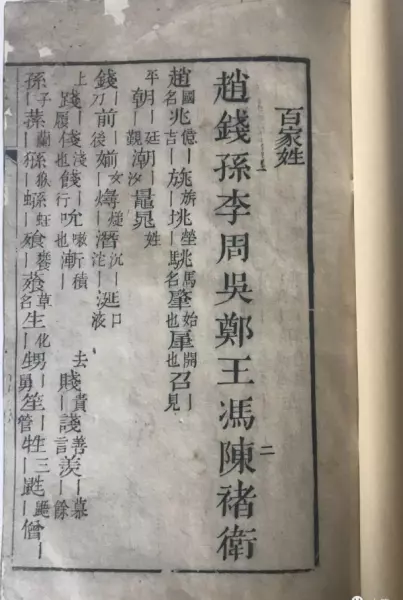 百家姓
趙錢孫李周吳鄭王馮陳褚衛
二
趙國名兆億｜吉｜旐旂｜垗塋｜駣馬名肇始也肁開也召｜見
平｜朝｜廷｜覲潮｜汐鼂晁姓
錢刀｜前｜後媊女｜燖潛沉｜涎口｜液
上｜踐｜履俴淺也餞｜行吮嗽也漸｜積 去｜賤貴｜諓善言羨｜慕｜餘
孫子｜蓀蘭｜猻猴｜飧饔｜薞草名生｜化甥｜舅笙｜管牲三｜鼪鼯｜僧｜